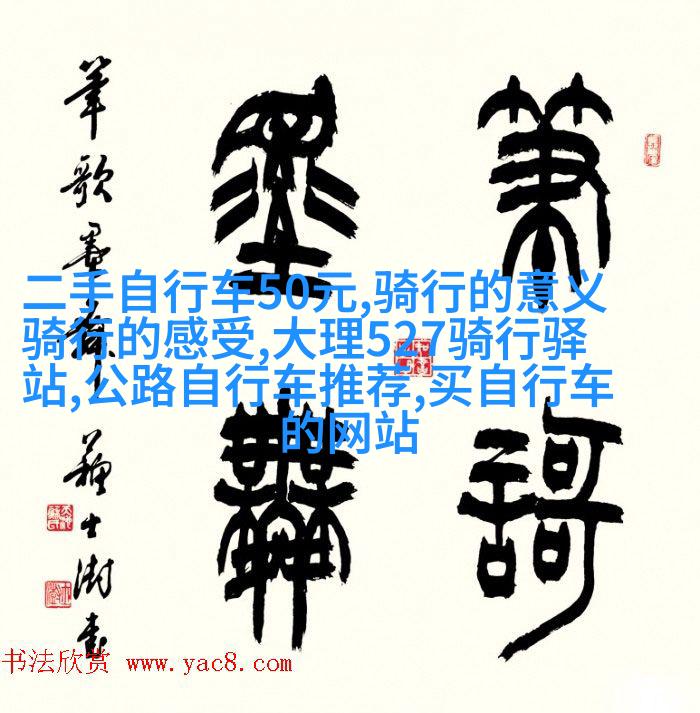 筆
謌
墨
舞
筆歌墨舞 蘇士澍書
二手自行车50元,骑行的意义
骑行的感受,大理527骑行驿
站,公路自行车推荐,买自行车
的网站
书法欣赏 www.yac8.com